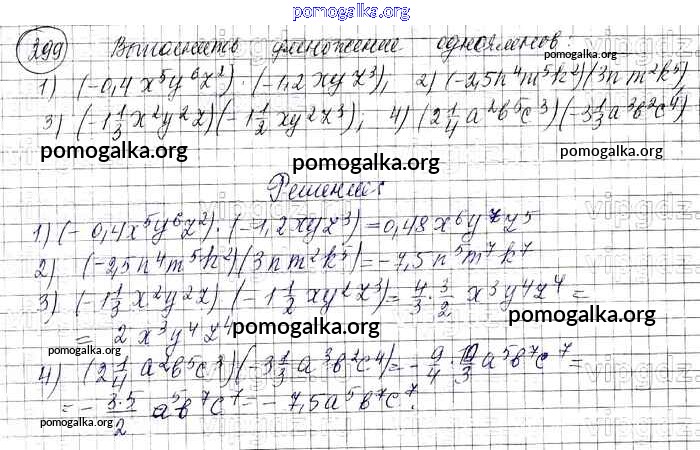 pomogalka.org
299 Выполнить умножение одночленов:
1) (-0,4x⁵y⁶z²)·(-1,2xyz³), 2) (-2,5n⁴m⁵k²)(3nm²k⁵),
3) (-1 1/3 x²y²z)(-1 1/2 xy²z³); 4) (2 1/4 a²b⁵c³)(-3 1/3 a³b²c⁴)
pomogalka.org
pomogalka.org
pomogalka.org
Решение:
1) (-0,4x⁵y⁶z²)·(-1,2xyz³)=0,48x⁶y⁷z⁵
2) (-2,5n⁴m⁵k²)(3nm²k⁵)=-7,5n⁵m⁷k⁷
3) (-1 1/3 x²y²z)(-1 1/2 xy²z³)=4/3·3/2 x³y⁴z⁴=
= 2x³y⁴z⁴
pomogalka.org
pomogalka.org
pomogalka.org
4) (2 1/4 a²b⁵c³)(-3 1/3 a³b²c⁴)=-9/4·10/3 a⁵b⁷c⁷=
= -3·5/2 a⁵b⁷c⁷=-7,5a⁵b⁷c⁷.
pomogalka.org
pomogalka.org
pomogalka.org